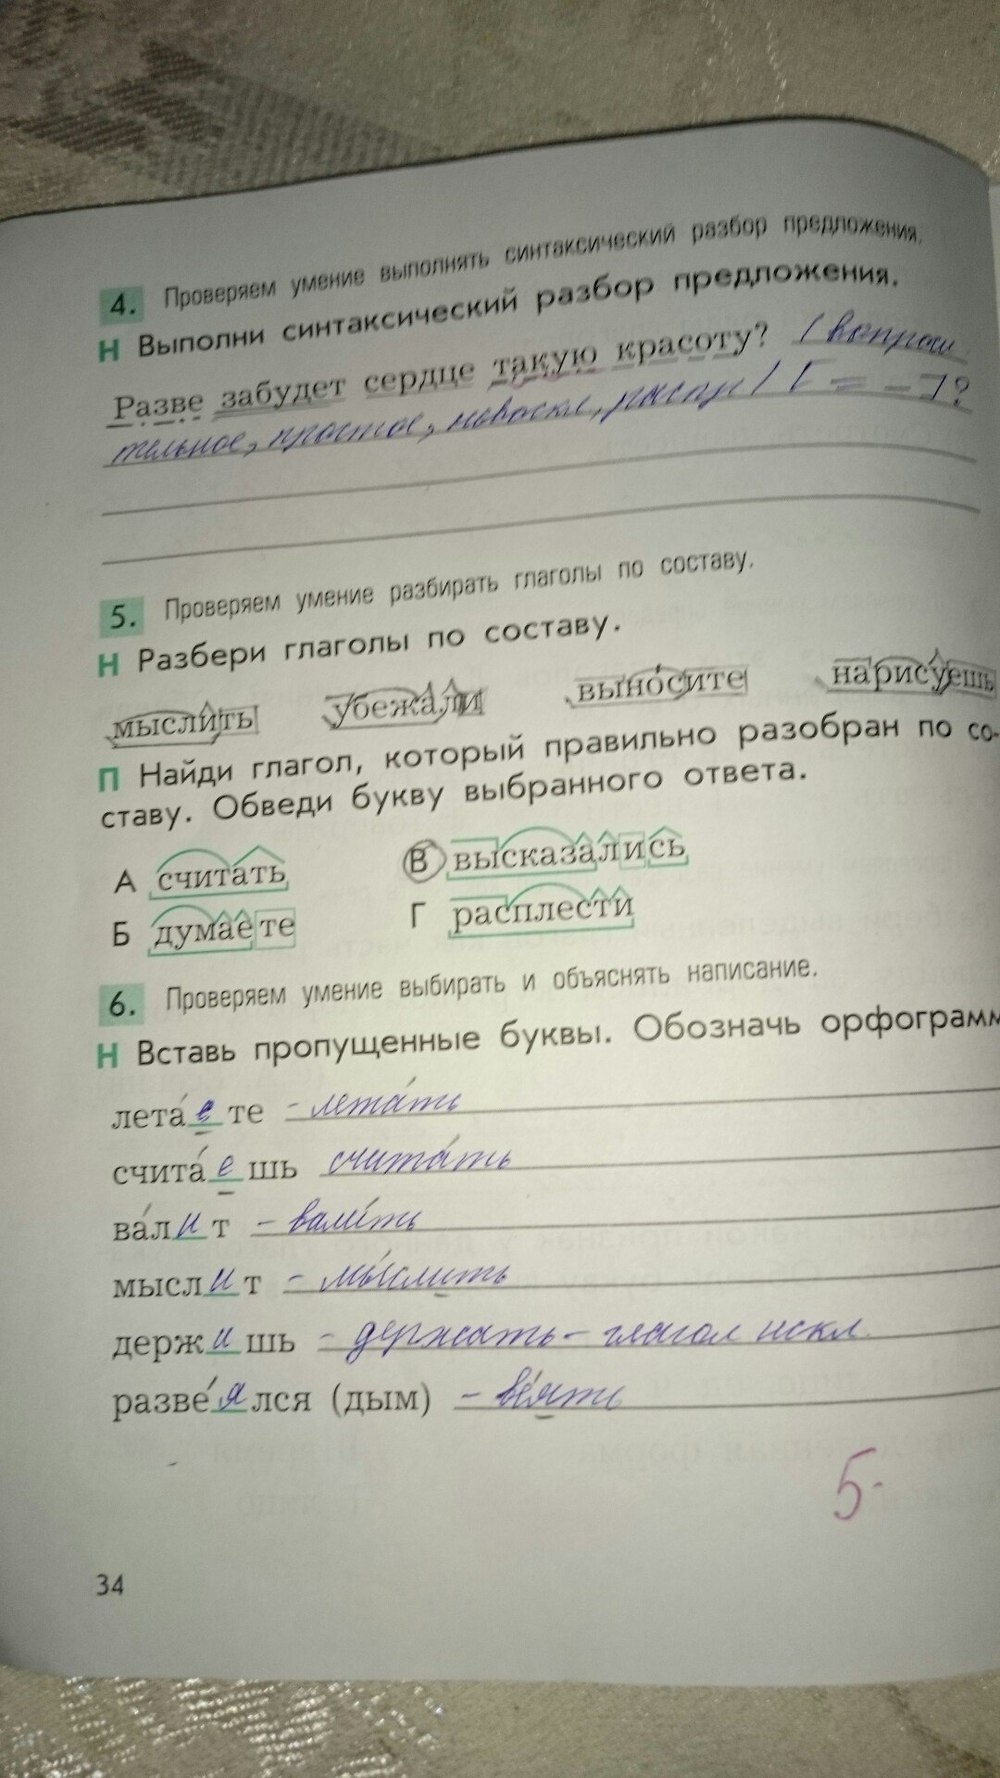 4. Проверяем умение выполнять синтаксический разбор предложения.
Н Выполни синтаксический разбор предложения.
Разве забудет сердце такую красоту? (вопроси
тельное, простое, невоскл, распр) [= –]?
5. Проверяем умение разбирать глаголы по составу.
Н Разбери глаголы по составу.
мыслить убежали выносите нарисуешь
П Найди глагол, который правильно разобран по со-
ставу. Обведи букву выбранного ответа.
А считать В высказались
Б думаете Г расплести
6. Проверяем умение выбирать и объяснять написание.
Н Вставь пропущенные буквы. Обозначь орфограмм
лета́ете - лета́ть
счита́ешь счита́ть
ва́лит - вали́ть
мыслит - мы́слить
держишь - держать - глагол искл.
разве́ялся (дым) - ве́ять
5-
34